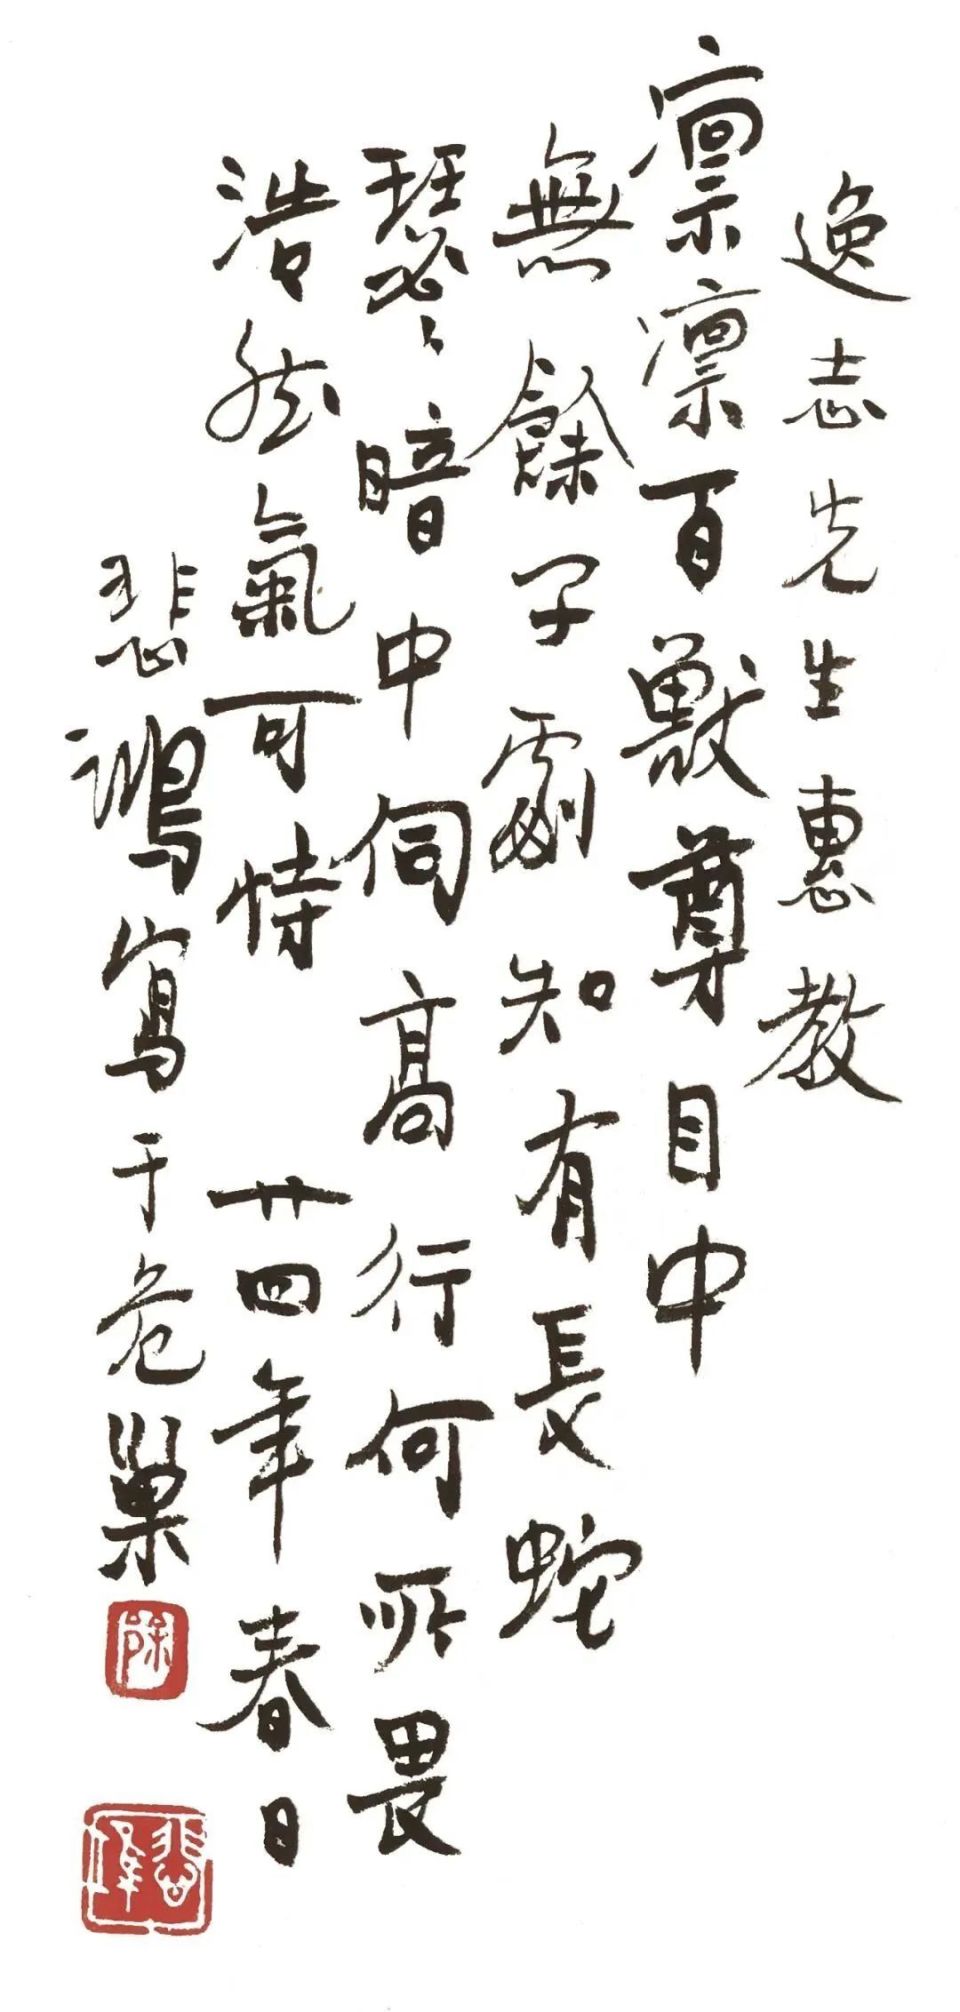 逸志先生惠教
凛凛百獸尊目中
無餘子劇知有長蛇
瑟々暗中伺高行何所畏
浩然氣可恃廿四年春日
悲鴻寫于危巢
徐
悲鴻